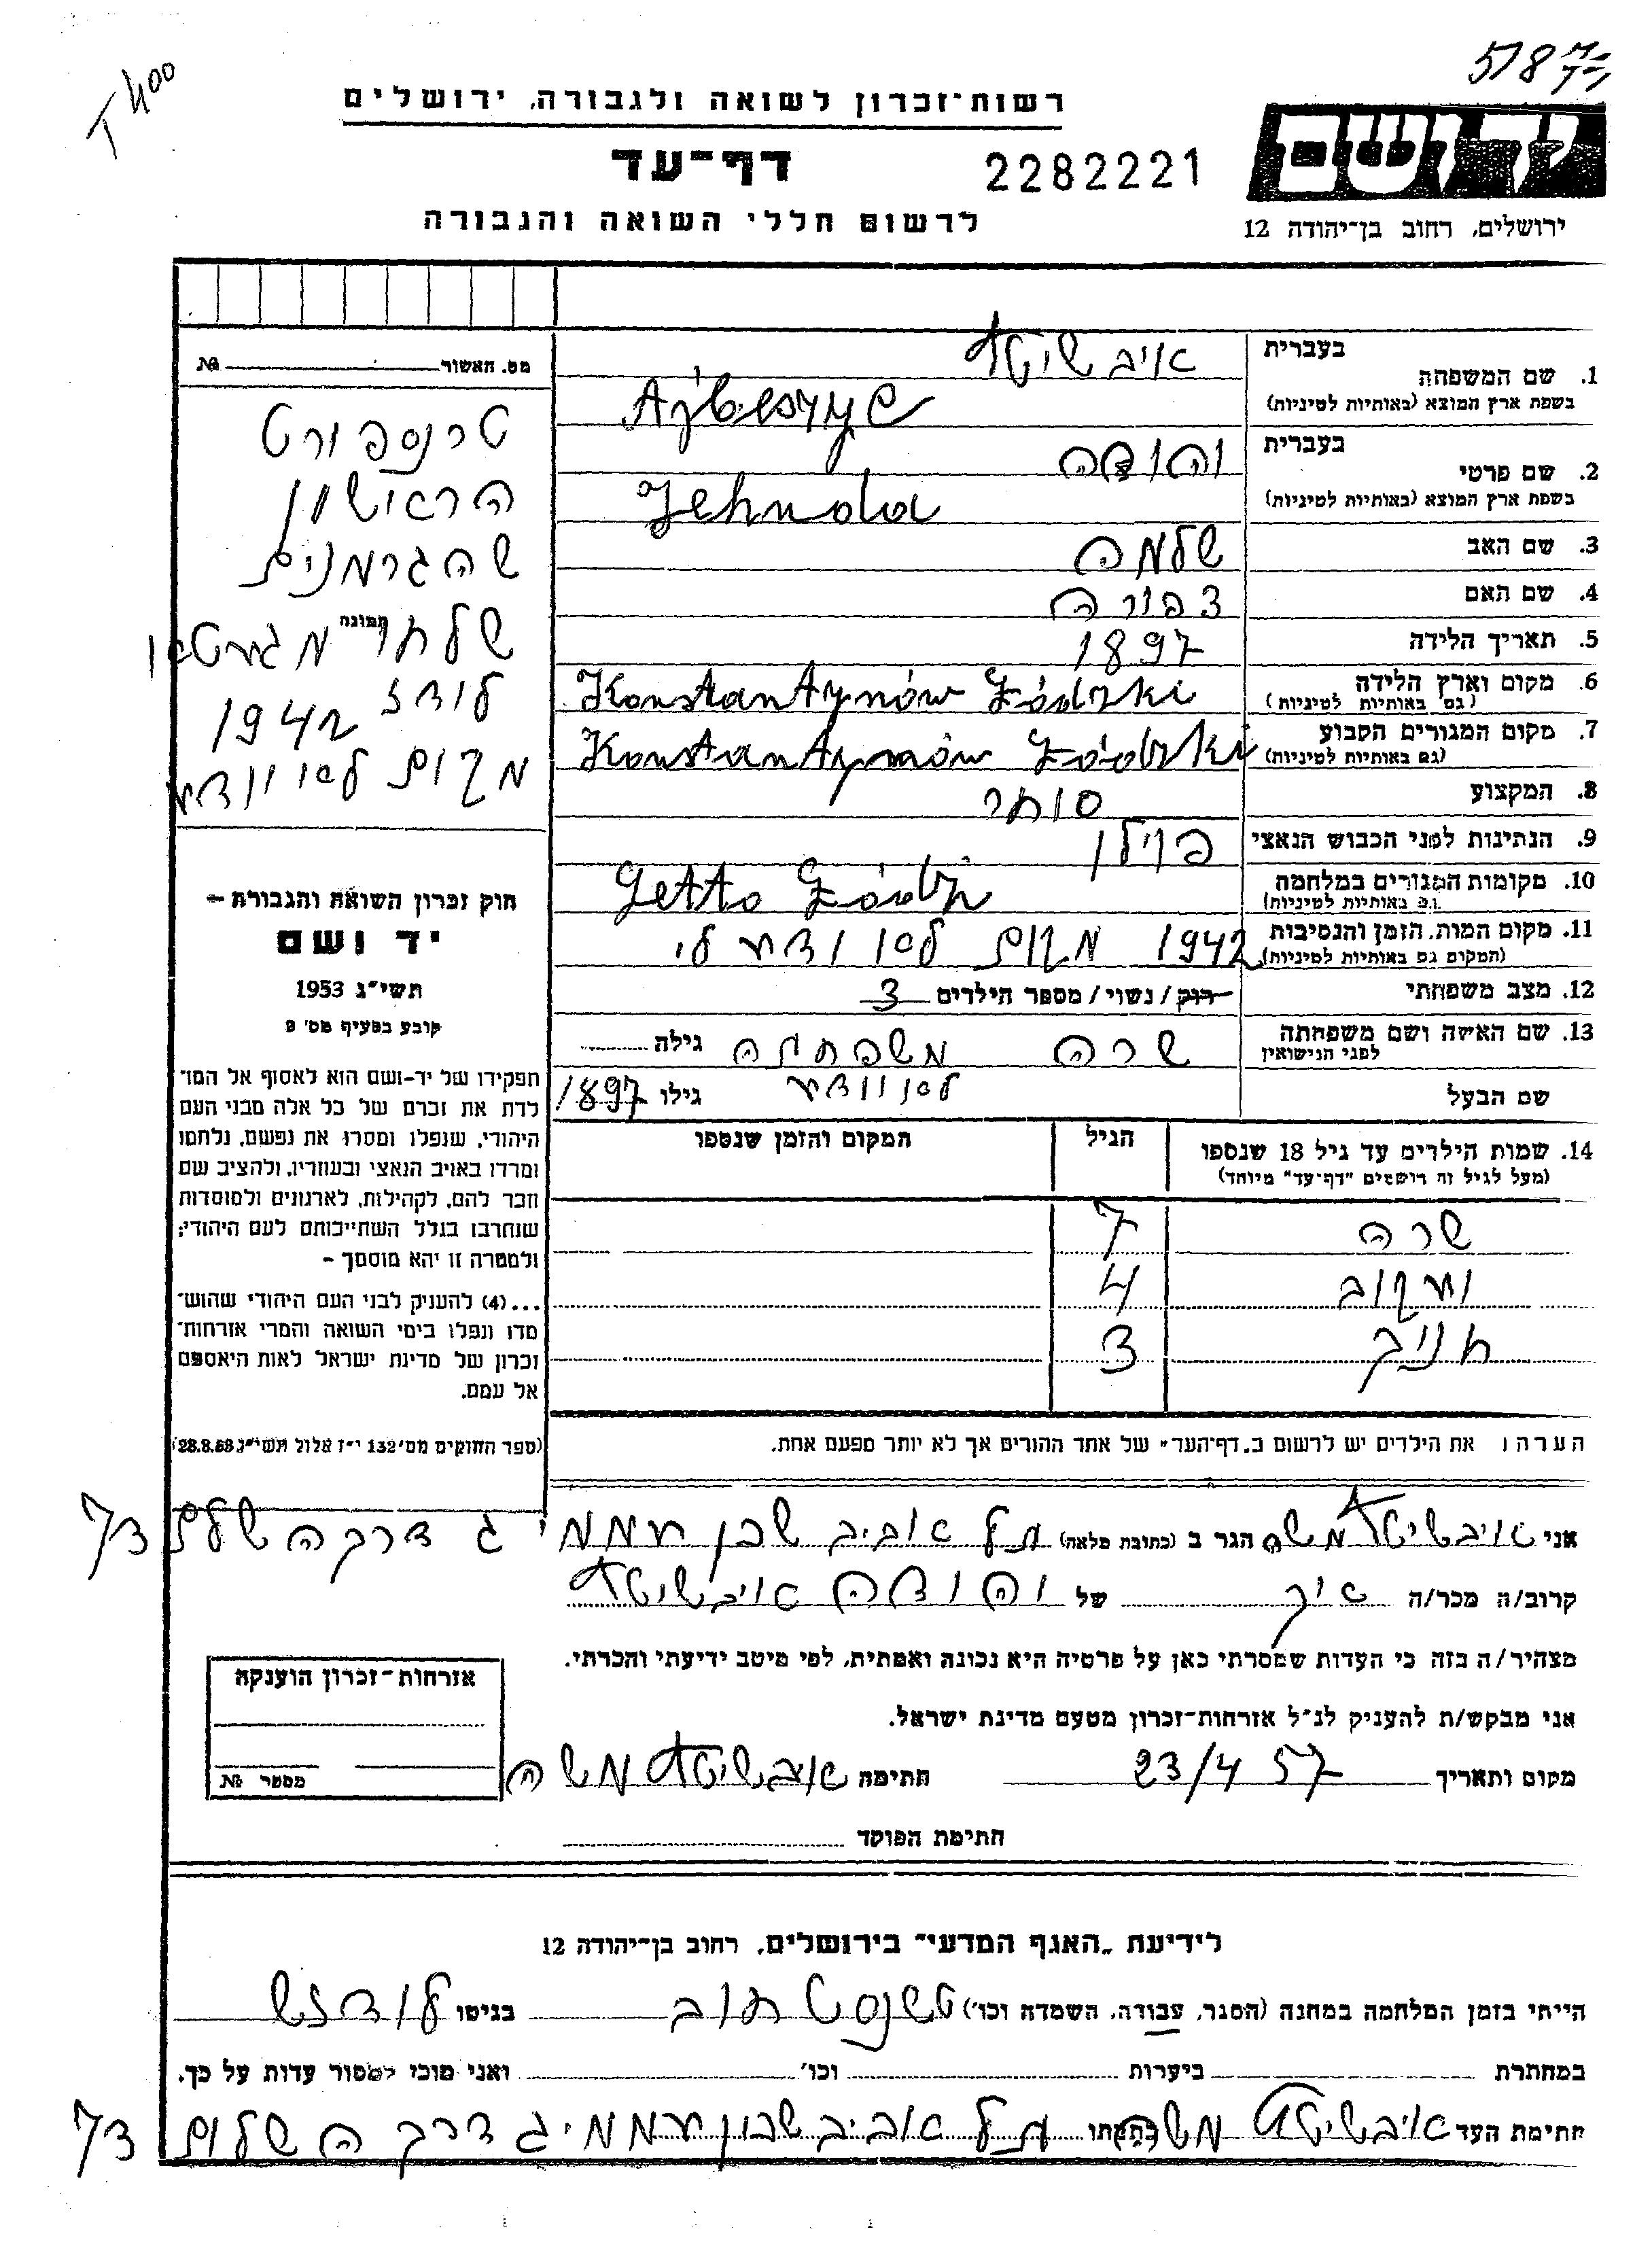 T 400
5187
רשות־זכרון לשואה ולגבורה, ירושלים
יד ושם
דף־עד
2282221
לרשום חללי השואה והגבורה
ירושלים, רחוב בן־יהודה 12
בעברית
איבשיטץ
1. שם המשפחה
בשפת ארץ המוצא (באותיות לטיניות)
Ajbeszyc
בעברית
יהודה
2. שם פרטי
בשפת ארץ המוצא (באותיות לטיניות)
Jehuda
3. שם האב שלמה
4. שם האם צפורה
5. תאריך הלידה 1897
6. מקום וארץ הלידה
(גם באותיות לטיניות)
Konstantynów Łódzki
7. מקום המגורים הקבוע
(גם באותיות לטיניות)
Konstantynów Łódzki
8. המקצוע סוחר
9. הנתינות לפני הכבוש הנאצי פוילן
10. מקומות המגורים במלחמה
(גם באותיות לטיניות)
Getto Łódź
11. מקום המות, הזמן והנסיבות
(המקום גם באותיות לטיניות)
1942 מקום לא ידוע לי
12. מצב משפחתי רוק/נשוי/מספר הילדים 3
13. שם האשה ושם משפחתה
לפני הנישואין
שרה משפחתה גילה
לא יודע
שם הבעל גילו 1897
14. שמות הילדים עד גיל 18 שנספו
(מעל לגיל זה רושמים "דף־עד" מיוחד)
הגיל
המקום והזמן שנספו
שרה 7
יעקוב 4
חניך 3
הערה: את הילדים יש לרשום ב„דף־העד" של אחד ההורים אך לא יותר מפעם אחת.
מס. האשור №
טרנספורט
הראישון
שהגרמנים
תמונה
שלחו מגיטאו
לודז
1942
מקום לא יודע
חוק זכרון השואה והגבורה –
יד ושם
תשי"ג 1953
קובע בסעיף מס' 2
תפקידו של יד-ושם הוא לאסוף אל המו־
לדת את זכרם של כל אלה מבני העם
היהודי, שנפלו ומסרו את נפשם, נלחמו
ומרדו באויב הנאצי ובעוזריו, ולהציב שם
וזכר להם, לקהילות, לארגונים ולמוסדות
שנחרבו בגלל השתייכותם לעם היהודי;
ולמטרה זו יהא מוסמך –
...(4) להעניק לבני העם היהודי שהוש־
מדו ונפלו בימי השואה והמרי אזרחות־
זכרון של מדינת ישראל לאות היאספם
אל עמם.
(ספר החוקים מס' 132 י"ז אלול תשי"ג 28.8.53)
אני איבשיטץ משה הגר ב (כתובת מלאה) תל אביב שכון עממי ג דרך השלם 73
קרוב/ה מכר/ה אח של יהודה איבשיטץ
מצהיר/ה בזה כי העדות שמסרתי כאן על פרטיה היא נכונה ואמתית, לפי מיטב ידיעתי והכרתי.
אני מבקש/ת להעניק לנ"ל אזרחות־זכרון מטעם מדינת ישראל.
מקום ותאריך 23/4 57 חתימה איבשיטץ משה
חתימת הפוקד
אזרחות־זכרון הוענקה
מספר №
לידיעת „האגף המדעי" בירושלים, רחוב בן־יהודה 12
הייתי בזמן המלחמה במחנה (הסגר, עבודה, השמדה וכו') טשנסטחוב בגיטו לודזש
במחתרת ביערות וכו' ואני מוכן למסור עדות על כך.
חתימת העד איבשיטץ משה כתבתו תל אביב שכון עממי ג דרך השלום 73